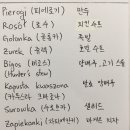 Pierogi (피에로기) 만두
Rosół (로수) 치킨 수프
Golonka (골롱카) 족발
Żurek (쥬렉) 호밀 수프
Bigos (비고스) 양배추, 고기 스튜
(Hunter's stew)
Kapusta kwaszona 발효 양배추
(카푸스타 크바쇼나)
Surówka (수루프카) 샐러드
Zapiekanki (자피에칸키)